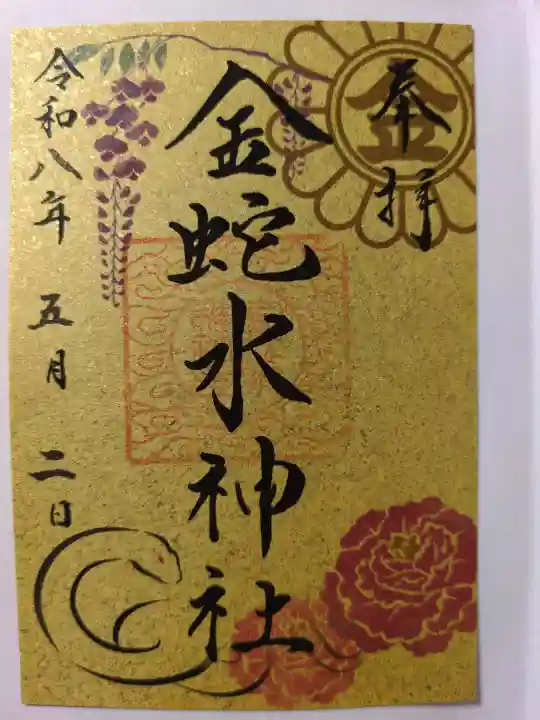 奉拝
金
金蛇水神社
令和八年 五月 二日